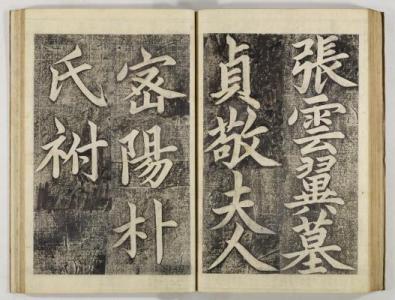 張雲翼墓
貞敬夫人
密陽朴
氏祔